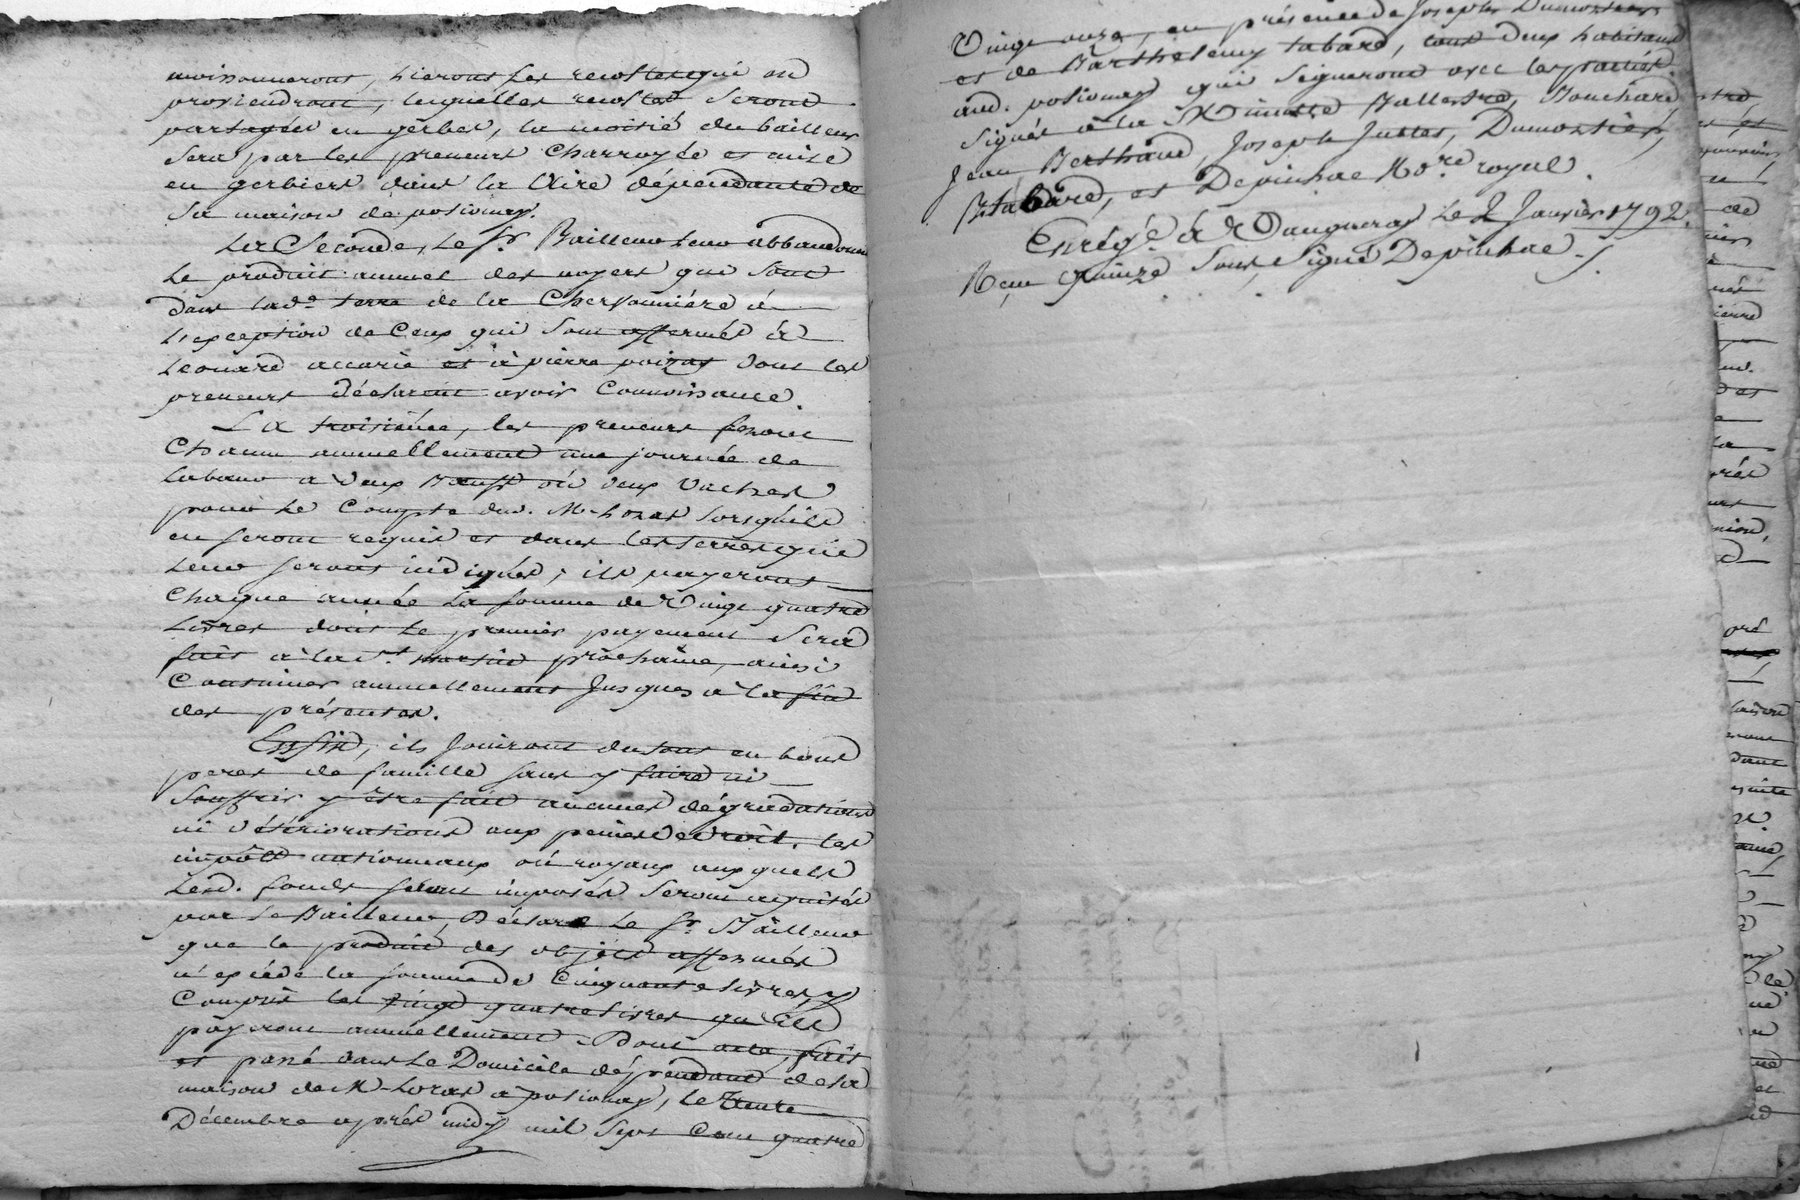 moissonneront, lieront les recoltes qui en
proviendront, lesquelles recoltes seront
partagées en gerbes, la moitié du bailleur
sera par les preneurs charroyée et mise
en gerbiers dans la Aire dépendante de
sa maison de polionay.
La Seconde, le Sr. Bailleur leur abbandonne
le produit annuel des noyers qui sont
dans lade. terre de la Chervonniére à
l'exception de Ceux qui sont affermés à
Leonard accarie et à pierre poizat dont les
preneurs déclarent avoir Connoissance.
La troisiéme, les preneurs feront
Chacun annuellement une journée de
labour a deux Bœufs ou deux Vaches
pour le Compte dud. Mr. Loras lorsquils
en seront requis et dans les terres qui
leur seront indiqués; ils payeront
Chaque année la somme de Vingt quatre
Livres dont le premier payement sera
fait a la St. martin prochaine, ainsi
Continuer annuellement jusques a la fin
des présentes.
Enfin, ils jouiront du tout en bons
peres de famille sans y faire ni
souffrir y être fait aucunes dégradations
ni détériorations aux peines de droit. les
impôts nationnaux ou royaux auxquels
lesd. fonds seront imposés seront aquités
par le Bailleur, Déclare le Sr. Bailleur
que le produit des objets affermés
n'exéde la somme de Cinquante livres y
Compris les vingt quatre livres qu'Ils
payeront annuellement. Dont acte, fait
et passé dans le Domicile dépendant de la
maison de Mr Loras a polionay, le trente
Décembre après midy mil sept Cent quatre
Vingt onze, en présence de Joseph Dumortier
et de Barthelemy tabard, tous deux habitans
aud. polionay qui signeront avec les parties.
Signés à la Minutte Ballestre, Bouchard
Jean Berthaud, Joseph Dumortier,
B. tabard, et Depinhac No.re royal.
Enrégé. à Vaugneray le 2 Janvier 1792.
Reçu quinze sous, Signé Depinhac.